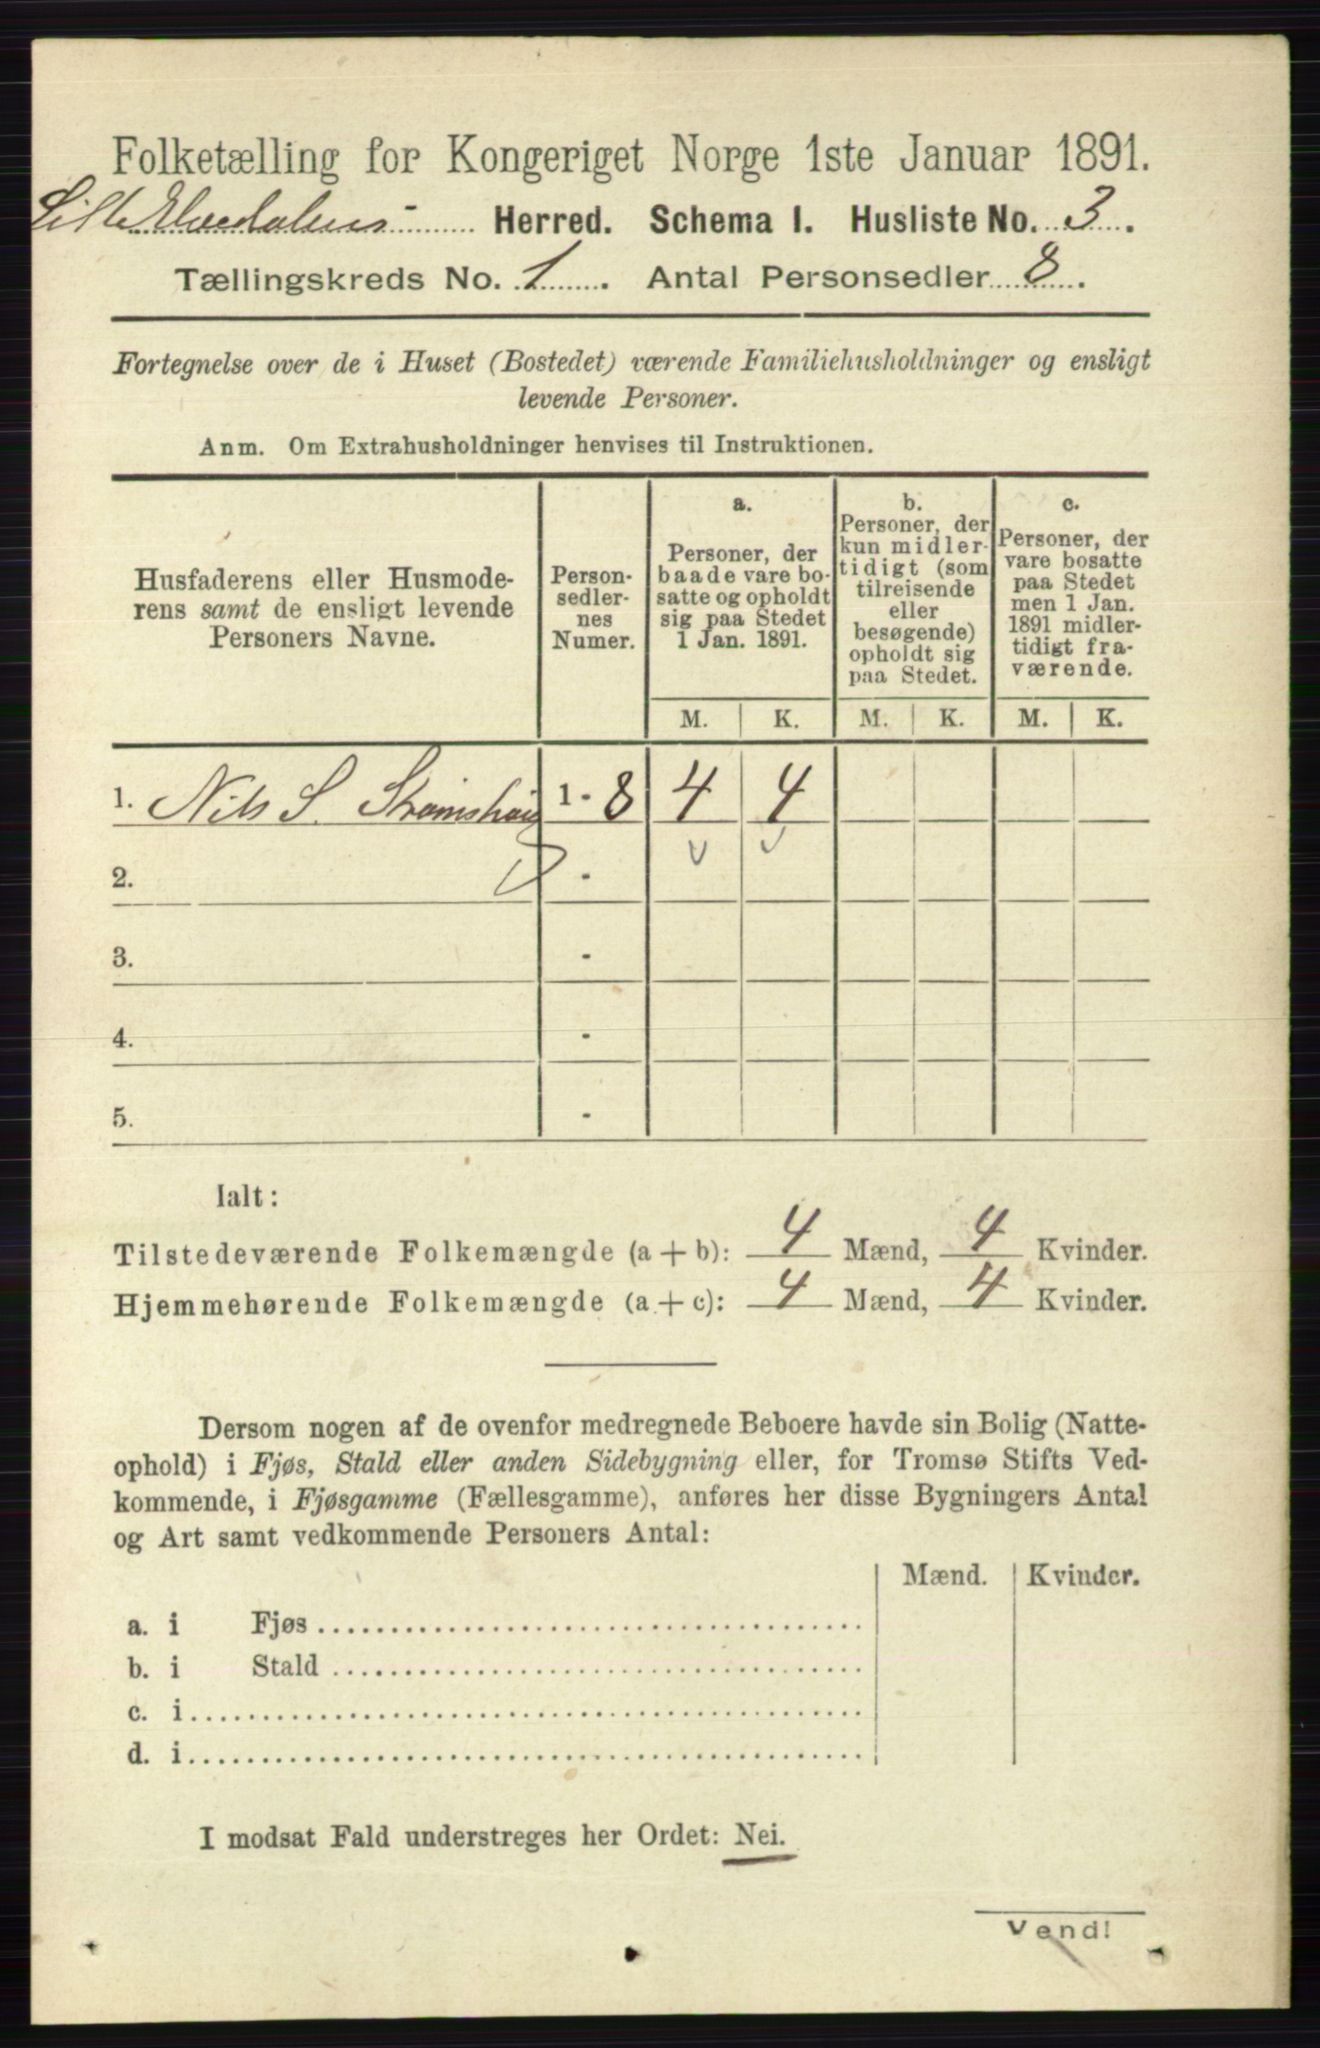 Folketælling for Kongeriget Norge 1ste Januar 1891.
Lille Elvedalens Herred. Schema I. Husliste No. 3.
Tællingskreds No. 1. Antal Personsedler 8.
Fortegnelse over de i Huset (Bostedet) værende Familiehusholdninger og ensligt
levende Personer.
Anm. Om Extrahusholdninger henvises til Instruktionen.
Husfaderens eller Husmode-
rens samt de ensligt levende
Personers Navne.
Person-
sedler-
nes
Numer.
a.
Personer, der
baade vare bo-
satte og opholdt
sig paa Stedet
1 Jan. 1891.
b.
Personer, der
kun midler-
tidigt (som
tilreisende
eller
besøgende)
opholdt sig
paa Stedet.
c.
Personer, der
vare bosatte
paa Stedet
men 1 Jan.
1891 midler-
tidigt fra-
værende.
M. K. M. K. M. K.
1. Nils S. Strømshoug 1 - 8 4 4
2. -
3. -
4. -
5. -
Ialt:
Tilstedeværende Folkemængde (a + b): 4 Mænd, 4 Kvinder.
Hjemmehørende Folkemængde (a + c): 4 Mænd, 4 Kvinder.
Dersom nogen af de ovenfor medregnede Beboere havde sin Bolig (Natte-
ophold) i Fjøs, Stald eller anden Sidebygning eller, for Tromsø Stifts Ved-
kommende, i Fjøsgamme (Fællesgamme), anføres her disse Bygningers Antal
og Art samt vedkommende Personers Antal:
Mænd. Kvinder.
a. i Fjøs
b. i Stald
c. i
d. i
I modsat Fald understreges her Ordet: Nei.
Vend!